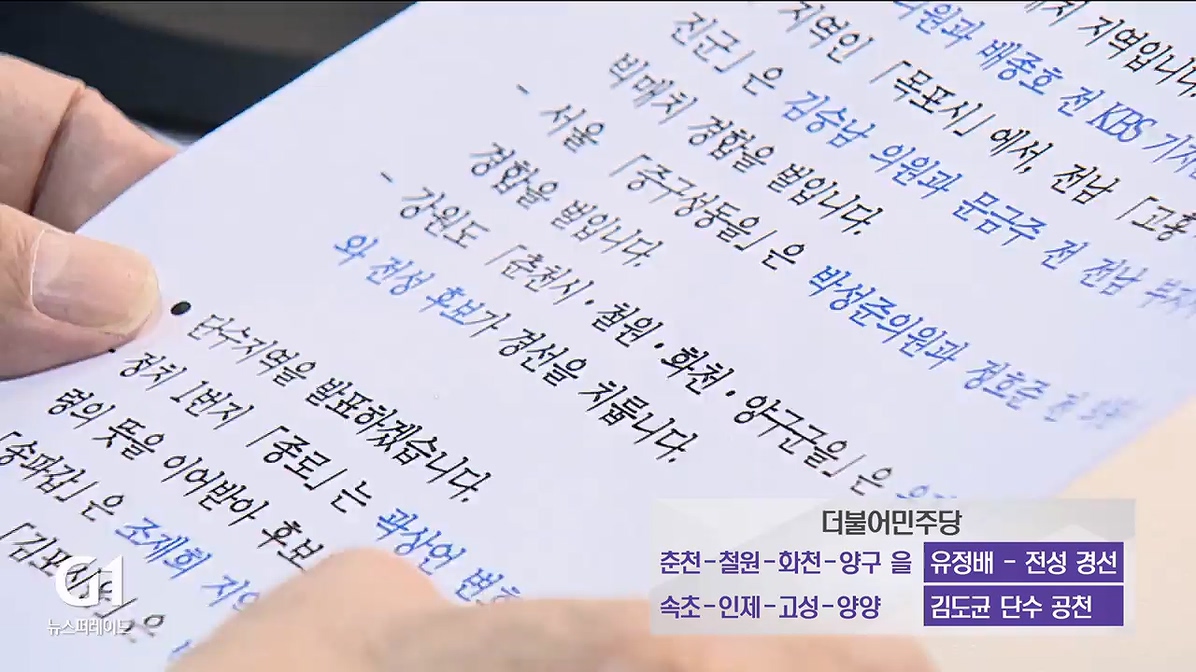 매치 지역입니다.
지역인 「목포시」에서, 전남 「고흥
의원과 배종호 전 KBS 기자
진군」은 김승남 의원과 문금주 전 전남 부지사
빅매치 경합을 벌입니다.
- 서울 「중구성동을」은 박성준의원과 정호준 전
경합을 벌입니다.
- 강원도 「춘천시·철원·화천·양구군을」은
와 전성 후보가 경선을 치룹니다.
● 단수지역을 발표하겠습니다.
- 정치 1번지 「종로」는 곽상언 변호
령의 뜻을 이어받아 후보
「송파갑」은 조재희 지역
「김포시을」은
더불어민주당
춘천-철원-화천-양구 을 유정배 - 전성 경선
속초-인제-고성-양양 김도균 단수 공천
G1
뉴스퍼레이드